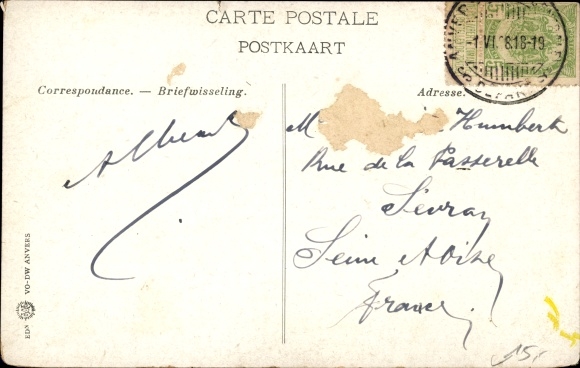 CARTE POSTALE
POSTKAART
Correspondance. — Briefwisseling.
Adresse.
Albert
M Humbert
Rue de la Passerelle
Sévran
Seine & Oise
France
EDN VO-DW ANVERS
15,